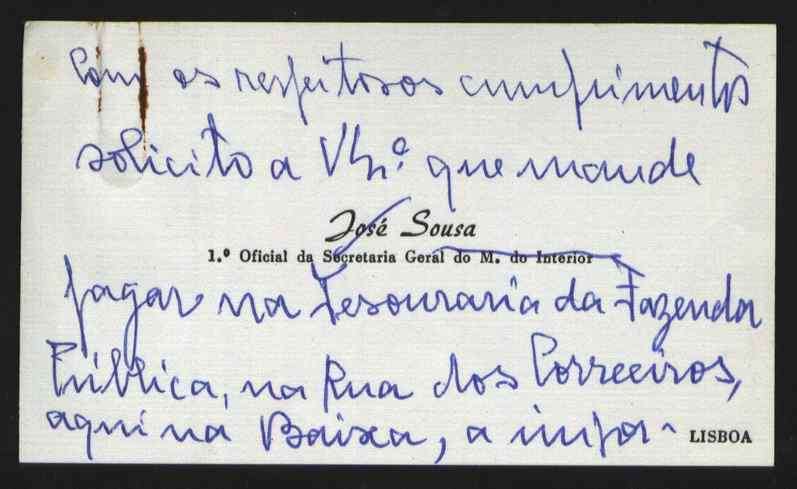 Com os respeitosos cumprimentos
solicito a VEx.ª que mande
José Sousa
1.º Oficial da Secretaria Geral do M. do Interior
pagar na Tesouraria da Fazenda
Pública, na Rua dos Correeiros,
aqui na Baixa, a impor-
LISBOA